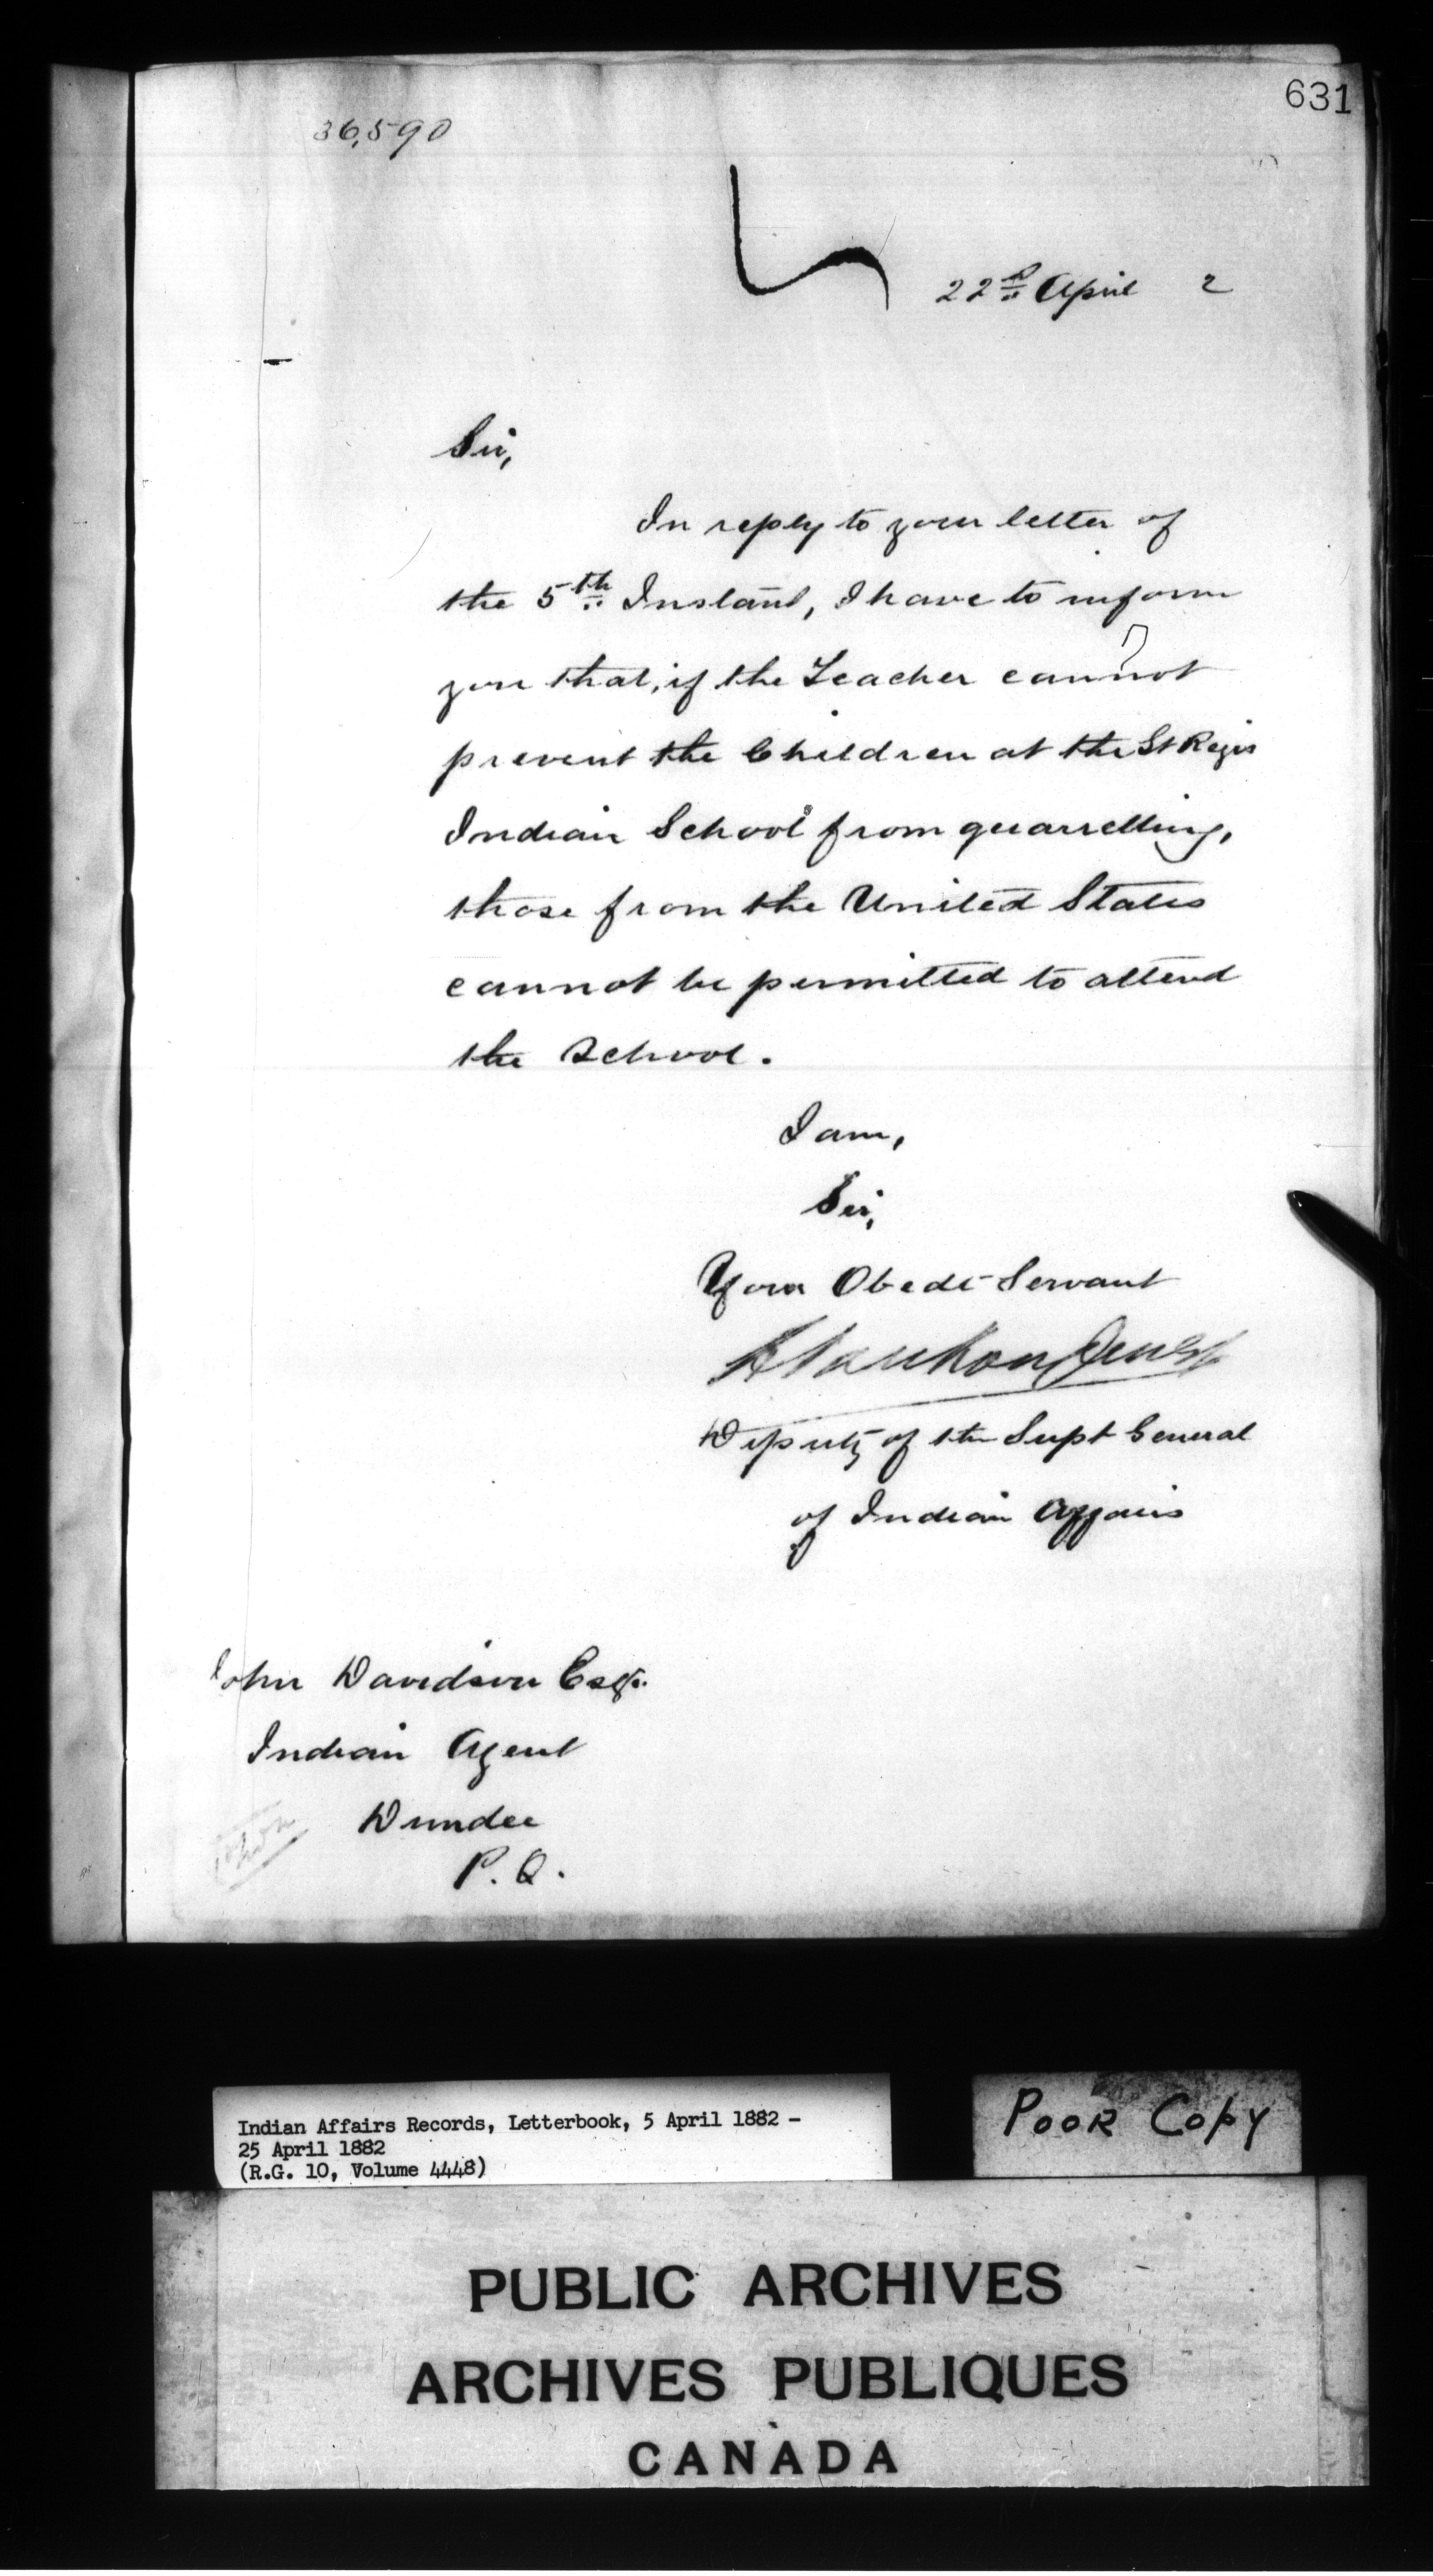 631
36,590
22nd April 2
Sir,
In reply to your letter of
the 5th Instant, I have to inform
you that, if the Teacher cannot
prevent the Children at the St Regis
Indian School from quarrelling,
those from the United States
cannot be permitted to attend
the School.
I am,
Sir,
Your Obedt Servant
L Vankoughnet
Deputy of the Supt General
of Indian Affairs
John Davidson Esq.
Indian Agent
Dundee
P. Q.
Indian Affairs Records, Letterbook, 5 April 1882 -
25 April 1882
(R.G. 10, Volume 4448)
POOR COPY
PUBLIC ARCHIVES
ARCHIVES PUBLIQUES
CANADA